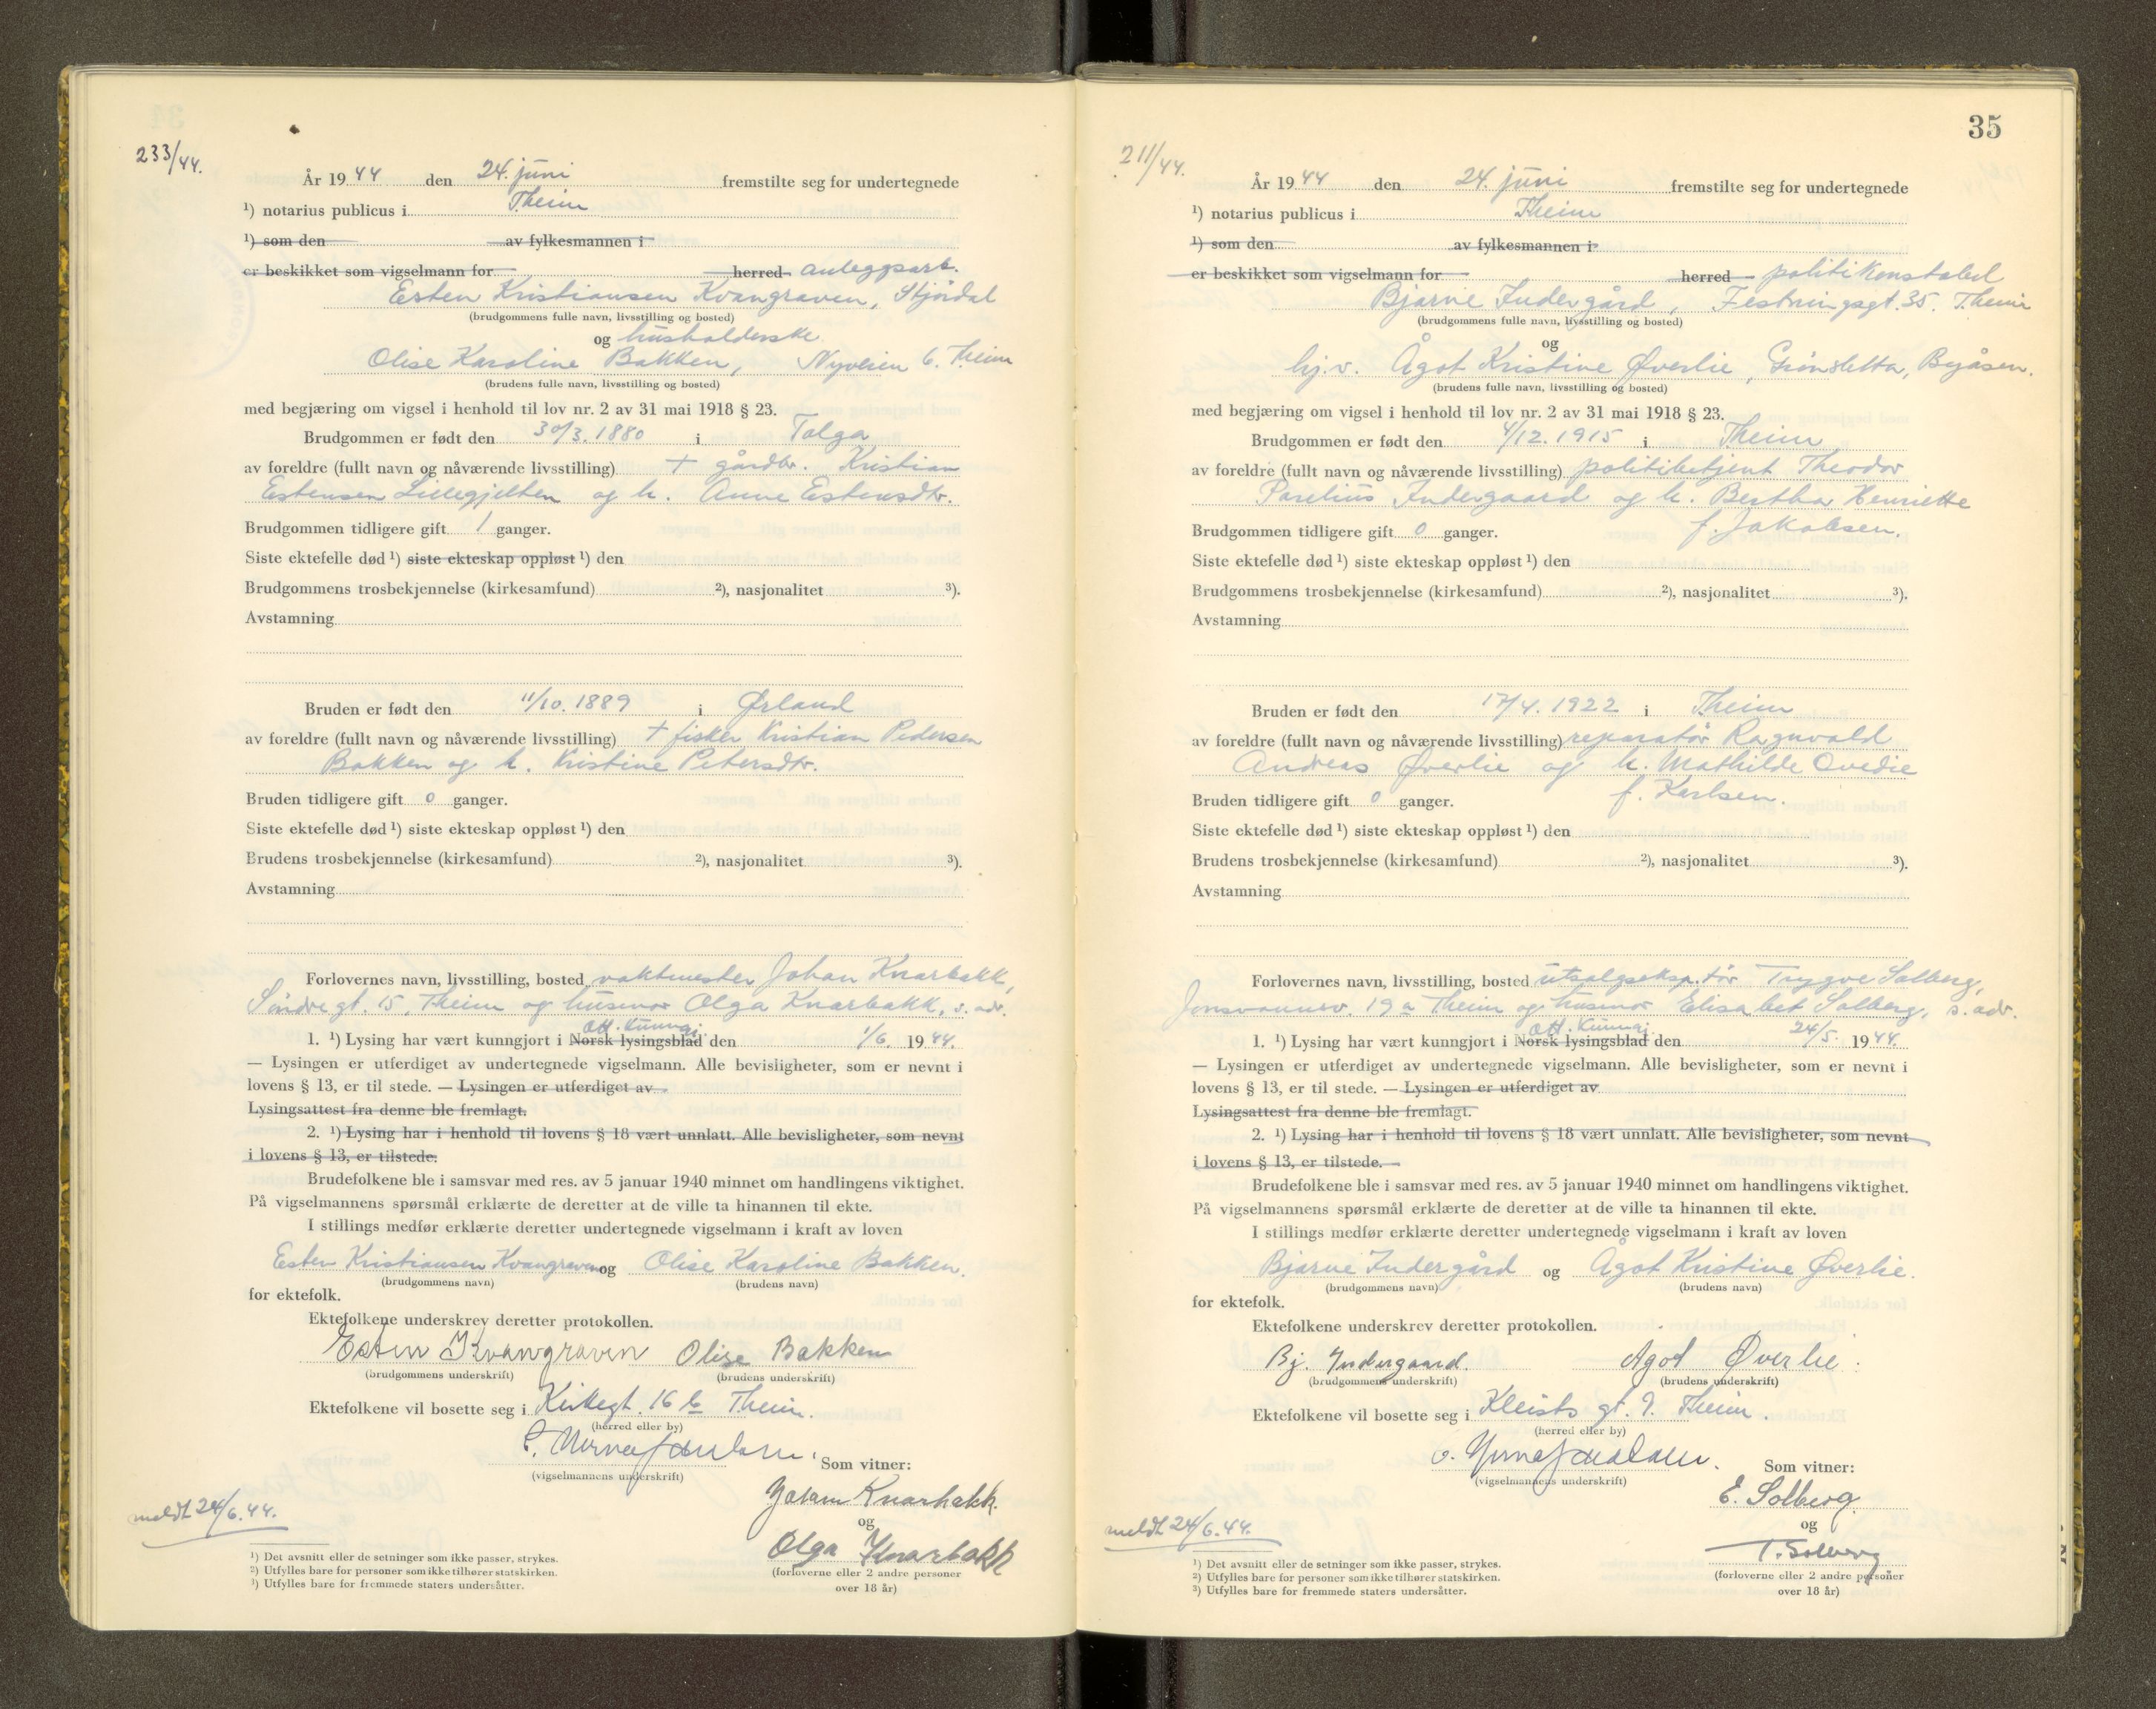 233/44.
År 1944 den 24. juni fremstilte seg for undertegnede
¹) notarius publicus i Theim
¹) som den av fylkesmannen i
er beskikket som vigselmann for herred anleggsarb.
Esten Kristiansen Kvangraven, Stjørdal
(brudgommens fulle navn, livsstilling og bosted)
og husholderske
Olise Karoline Bakken, Nyveien 6. Theim
(brudens fulle navn, livsstilling og bosted)
med begjæring om vigsel i henhold til lov nr. 2 av 31 mai 1918 § 23.
Brudgommen er født den 30/3. 1880 i Tolga
av foreldre (fullt navn og nåværende livsstilling) + gårdbr. Kristian
Estensen Lillegjelten og h. Anne Estensdtr.
Brudgommen tidligere gift 1 ganger.
Siste ektefelle død ¹) siste ekteskap oppløst ¹) den
Brudgommens trosbekjennelse (kirkesamfund) ²), nasjonalitet ³).
Avstamning
Bruden er født den 11/10. 1889 i Ørland
av foreldre (fullt navn og nåværende livsstilling) + fisker Kristian Pedersen
Bakken og h. Kristine Petersdtr.
Bruden tidligere gift 0 ganger.
Siste ektefelle død ¹) siste ekteskap oppløst ¹) den
Brudens trosbekjennelse (kirkesamfund) ²), nasjonalitet ³).
Avstamning
Forlovernes navn, livsstilling, bosted vaktmester Johan Knarbakk,
Søndregt. 15, Theim og husmor Olga Knarbakk, s. adr.
Off. kunngj.
1. ¹) Lysing har vært kunngjort i Norsk lysingsblad den 1/6. 1944.
— Lysingen er utferdiget av undertegnede vigselmann. Alle bevisligheter, som er nevnt i
lovens § 13, er til stede. — Lysingen er utferdiget av
Lysingsattest fra denne ble fremlagt.
2. ¹) Lysing har i henhold til lovens § 18 vært unnlatt. Alle bevisligheter, som nevnt
i lovens § 13, er tilstede.
Brudefolkene ble i samsvar med res. av 5 januar 1940 minnet om handlingens viktighet.
På vigselmannens spørsmål erklærte de deretter at de ville ta hinannen til ekte.
I stillings medfør erklærte deretter undertegnede vigselmann i kraft av loven
Esten Kristiansen Kvangraven og Olise Karoline Bakken.
(brudgommens navn) (brudens navn)
for ektefolk.
Ektefolkene underskrev deretter protokollen.
Esten Kvangraven Olise Bakken
(brudgommens underskrift) (brudens underskrift)
Ektefolkene vil bosette seg i Kirkegt. 16 b Theim.
(herred eller by)
Som vitner:
(vigselmannens underskrift)
Johan Knarbakk.
og
Olga Knarbakk
(forloverne eller 2 andre personer
over 18 år)
meldt 24/6.44.
¹) Det avsnitt eller de setninger som ikke passer, strykes.
²) Utfylles bare for personer som ikke tilhører statskirken.
³) Utfylles bare for fremmede staters undersåtter.
35
211/44.
År 1944 den 24. juni fremstilte seg for undertegnede
¹) notarius publicus i Theim
¹) som den av fylkesmannen i
er beskikket som vigselmann for herred politikonstabel
Bjarne Indergård, Festningsgt. 35. Theim
(brudgommens fulle navn, livsstilling og bosted)
og
hj.v. Ågot Kristine Øverlie, Grønsletta, Byåsen.
(brudens fulle navn, livsstilling og bosted)
med begjæring om vigsel i henhold til lov nr. 2 av 31 mai 1918 § 23.
Brudgommen er født den 4/12. 1915 i Theim
av foreldre (fullt navn og nåværende livsstilling) politibetjent Theodor
Parelius Indergaard og h. Bertha Henriette
f. Jakobsen.
Brudgommen tidligere gift 0 ganger.
Siste ektefelle død ¹) siste ekteskap oppløst ¹) den
Brudgommens trosbekjennelse (kirkesamfund) ²), nasjonalitet ³).
Avstamning
Bruden er født den 17/4. 1922 i Theim
av foreldre (fullt navn og nåværende livsstilling) reparatør Ragnvald
Andreas Øverlie og h. Mathilde Ovedie
f. Karlsen.
Bruden tidligere gift 0 ganger.
Siste ektefelle død ¹) siste ekteskap oppløst ¹) den
Brudens trosbekjennelse (kirkesamfund) ²), nasjonalitet ³).
Avstamning
Forlovernes navn, livsstilling, bosted utsalgseksp.tør Trygve Solberg,
Jonsvannsv. 19 a Theim og husmor Elisabet Solberg, s. adr.
Off. kunngj.
1. ¹) Lysing har vært kunngjort i Norsk lysingsblad den 24/5. 1944.
— Lysingen er utferdiget av undertegnede vigselmann. Alle bevisligheter, som er nevnt i
lovens § 13, er til stede. — Lysingen er utferdiget av
Lysingsattest fra denne ble fremlagt.
2. ¹) Lysing har i henhold til lovens § 18 vært unnlatt. Alle bevisligheter, som nevnt
i lovens § 13, er tilstede.
Brudefolkene ble i samsvar med res. av 5 januar 1940 minnet om handlingens viktighet.
På vigselmannens spørsmål erklærte de deretter at de ville ta hinannen til ekte.
I stillings medfør erklærte deretter undertegnede vigselmann i kraft av loven
Bjarne Indergård og Ågot Kristine Øverlie.
(brudgommens navn) (brudens navn)
for ektefolk.
Ektefolkene underskrev deretter protokollen.
Bj. Indergaard Agot Øverlie
(brudgommens underskrift) (brudens underskrift)
Ektefolkene vil bosette seg i Kleists gt. 9. Theim.
(herred eller by)
Som vitner:
(vigselmannens underskrift)
E. Solberg
og
T. Solberg
(forloverne eller 2 andre personer
over 18 år)
meldt 24/6.44.
¹) Det avsnitt eller de setninger som ikke passer, strykes.
²) Utfylles bare for personer som ikke tilhører statskirken.
³) Utfylles bare for fremmede staters undersåtter.